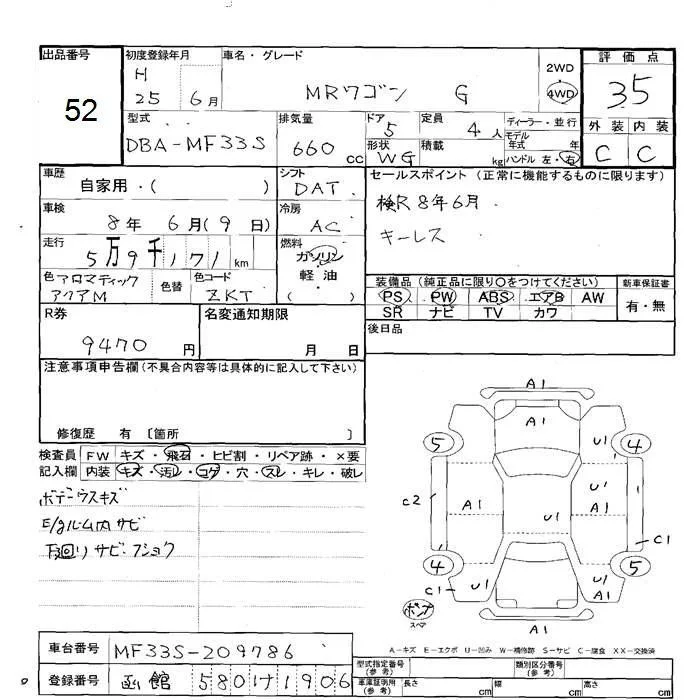 出品番号 初度登録年月 車名・グレード 評価点
52
H 25 6月 MRワゴン G 2WD 4WD 35
型式 排気量 ドア 定員 ディーラー・並行 外装 内装
DBA-MF33S 660cc 5 4人 モデル年式 年 C C
形状 WG 積載 kg ハンドル 左・右
車歴 シフト セールスポイント(正常に機能するものに限ります)
自家用・( ) DAT
検R8年6月
車検 冷房
8年 6月(9日) AC
キーレス
走行 燃料
5万9千171km ガソリン
軽油
( )
色 アロマティックアクアM 色替 色コード ZKT
装備品(純正品に限り○をつけてください) 新車保証書
PS PW ABS エアB AW 有・無
SR ナビ TV カワ
R券 名変通知期限 後日品
9470円 月 日
注意事項申告欄(不具合内容等は具体的に記入して下さい)
修復歴 有〔箇所 〕
検査員記入欄 FW キズ・飛石・ヒビ割・リペア跡・×要
内装 キズ・汚レ・コゲ・穴・スレ・キレ・破レ
ボデーウスキズ
E/gルーム内サビ
下回りサビ・フショク
A1
A1
5 U1 4
C2 A1 U1 A1
U1
C1
4 5
C1 U1 A1 U1
パンク
スペア
A1
A-キズ E-エクボ U-凹み W-補修跡 S-サビ C-腐食 XX-交換済
車台番号 MF33S-209786
型式指定番号(参考) 類別区分番号(参考)
登録番号 函館 580け1906
車庫証明用(参考) 長さ cm 幅 cm 高さ cm